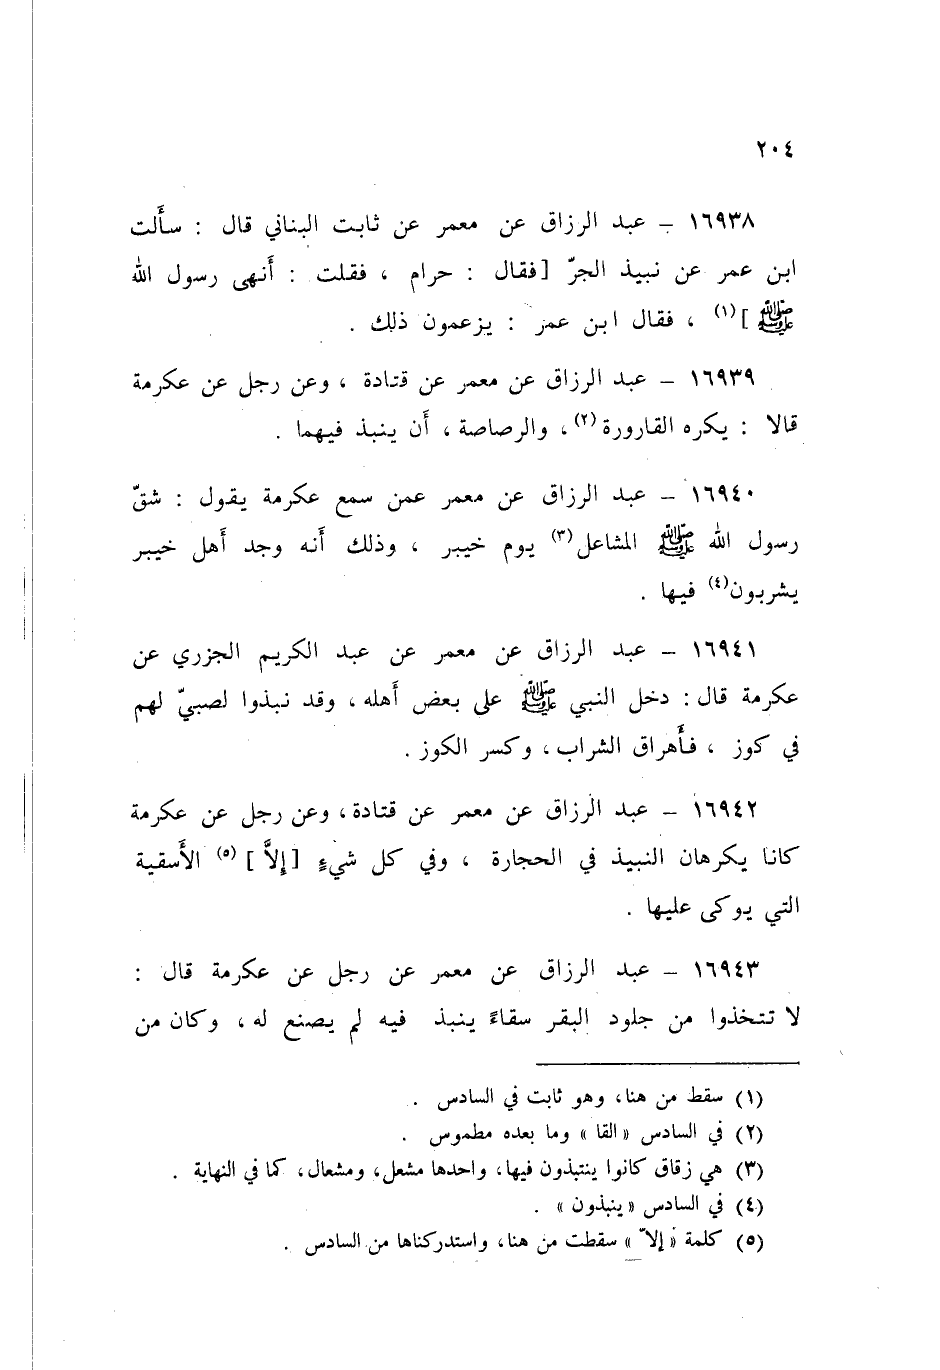 ٢٠٤
١٦٩٣٨ – عبد الرزاق عن معمر عن ثابت البناني قال : سأَلت
ابن عمر عن نبيذ الجرّ [فقال : حرام ، فقلت : أَنهى رسول الله
ﷺ ](١) ، فقال ابن عمر : يزعمون ذلك .
١٦٩٣٩ – عبد الرزاق عن معمر عن قتادة ، وعن رجل عن عكرمة
قالا : يكره القارورة(٢)، والرصاصة ، أَن ينبذ فيهما .
١٦٩٤٠ – عبد الرزاق عن معمر عمن سمع عكرمة يقول : شقّ
رسول الله ﷺ المشاعل(٣) يوم خيبر ، وذلك أَنه وجد أَهل خيبر
يشربون(٤) فيها .
١٦٩٤١ – عبد الرزاق عن معمر عن عبد الكريم الجزري عن
عكرمة قال : دخل النبي ﷺ على بعض أَهله ، وقد نبذوا لصبيّ لهم
في كوز ، فأَهراق الشراب ، وكسر الكوز .
١٦٩٤٢ – عبد الرزاق عن معمر عن قتادة ، وعن رجل عن عكرمة
كانا يكرهان النبيذ في الحجارة ، وفي كل شيءٍ [إِلاَّ ](٥) الأَسقية
التي يوكى عليها .
١٦٩٤٣ – عبد الرزاق عن معمر عن رجل عن عكرمة قال :
لا تتخذوا من جلود البقر سقاءً ينبذ فيه لم يصنع له ، وكان من
(١) سقط من هنا، وهو ثابت في السادس .
(٢) في السادس «القا» وما بعده مطموس .
(٣) هي زقاق كانوا ينتبذون فيها، واحدها مشعل، ومشعال، كما في النهاية .
(٤) في السادس «ينبذون» .
(٥) كلمة «إلاّ» سقطت من هنا، واستدركناها من السادس .